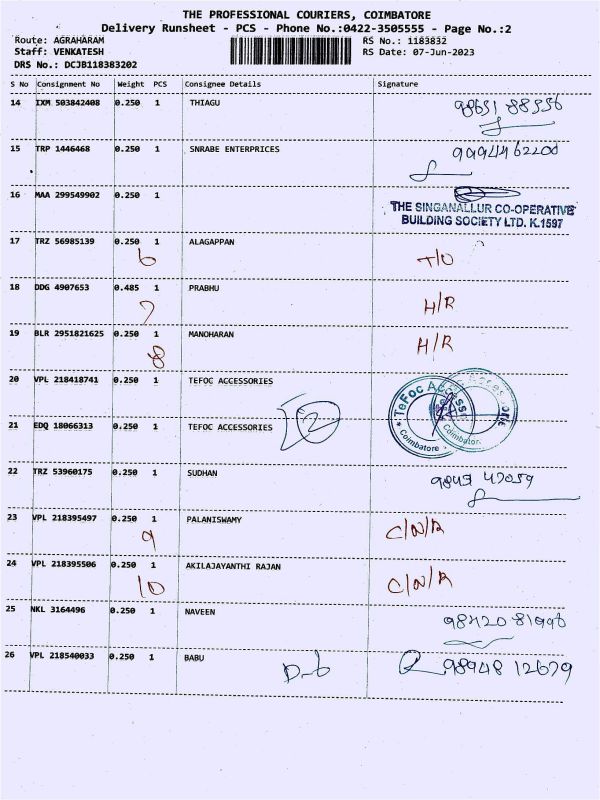 THE PROFESSIONAL COURIERS, COIMBATORE
Delivery Runsheet - PCS - Phone No.:0422-3505555 - Page No.:2
Route: AGRAHARAM RS No.: 1183832
Staff: VENKATESH RS Date: 07-Jun-2023
DRS No.: DCJB118383202
S No Consignment No Weight PCS Consignee Details Signature
14 IXM 503842408 0.250 1 THIAGU
15 TRP 1446468 0.250 1 SNRABE ENTERPRICES
16 MAA 299549902 0.250 1
THE SINGANALLUR CO-OPERATIVE
BUILDING SOCIETY LTD. K.1597
17 TRZ 56985139 0.250 1 ALAGAPPAN
6 T/O
18 DDG 4907653 0.485 1 PRABHU
7 H/R
19 BLR 2951821625 0.250 1 MANOHARAN H/R
8
20 VPL 218418741 0.250 1 TEFOC ACCESSORIES
TeFoc Access
Coimbatore
2
21 EDQ 18066313 0.250 1 TEFOC ACCESSORIES
22 TRZ 53960175 0.250 1 SUDHAN
23 VPL 218395497 0.250 1 PALANISWAMY
9 C/N/R
24 VPL 218395506 0.250 1 AKILAJAYANTHI RAJAN
10 C/N/R
25 NKL 3164496 0.250 1 NAVEEN
26 VPL 218540033 0.250 1 BABU 98948 12679